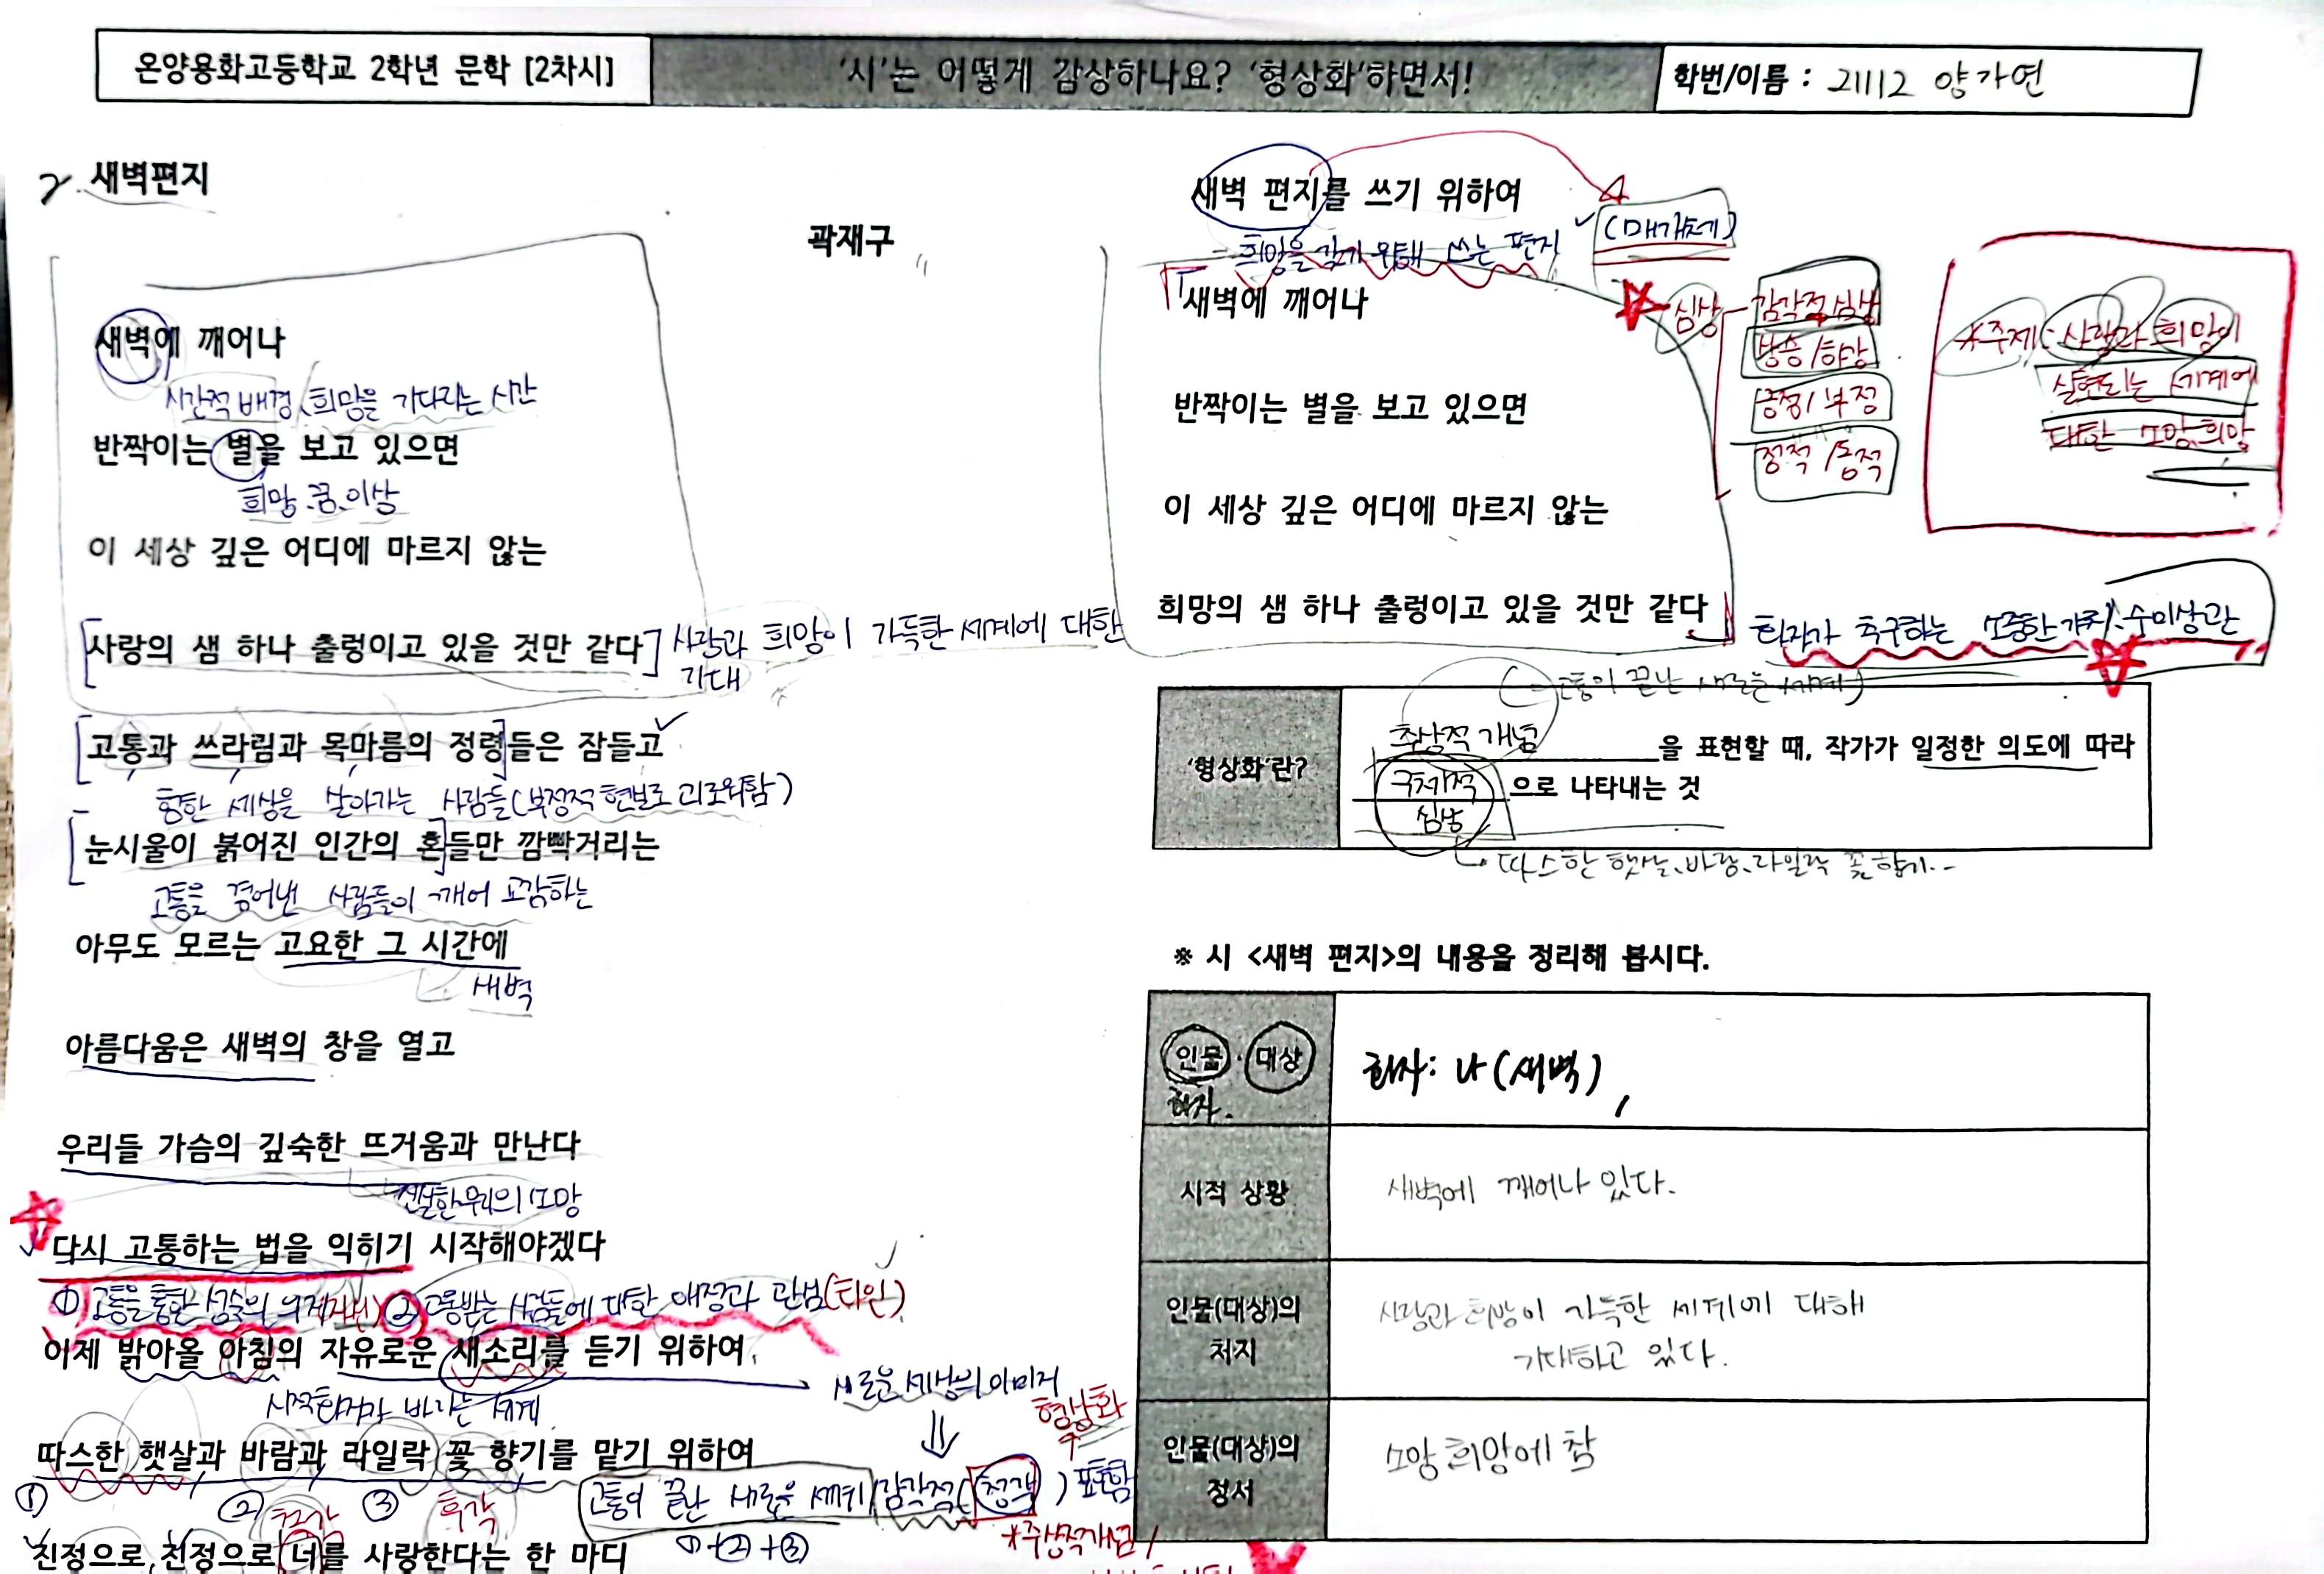 온양용화고등학교 2학년 문학 [2차시]
'시'는 어떻게 감상하나요? '형상화'하면서!
학번/이름 : 21112 양가연
새벽편지
곽재구
새벽에 깨어나
시간적 배경, 희망을 기다리는 시간
반짝이는 별을 보고 있으면
희망, 꿈, 이상
이 세상 깊은 어디에 마르지 않는
사랑의 샘 하나 출렁이고 있을 것만 같다
사랑과 희망이 가득한 세계에 대한
기대
고통과 쓰라림과 목마름의 정령들은 잠들고
힘한 세상을 살아가는 사람들(부정적 현실로 괴로워함)
눈시울이 붉어진 인간의 혼들만 깜빡거리는
고통을 겪어낸 사람들이 깨어 교감하는
아무도 모르는 고요한 그 시간에
새벽
아름다움은 새벽의 창을 열고
우리들 가슴의 깊숙한 뜨거움과 만난다
소망
다시 고통하는 법을 익히기 시작해야겠다
① 고통을 통한 성숙의 의지 ② 고통받는 사람들에 대한 애정과 관심(타인)
이제 밝아올 아침의 자유로운 새소리를 듣기 위하여
시적화자가 바라는 세계
새로운 세상의 이미지
따스한 햇살과 바람과 라일락 꽃 향기를 맡기 위하여
① ② 촉각 ③ 후각
고통이 끝난 새로운 세계 / 감각적(청각) 표현
형상화
①+②+③
*추상적개념/
진정으로, 진정으로 너를 사랑한다는 한 마디
새벽 편지를 쓰기 위하여
(매개체)
- 희망을 갖기 위해 쓰는 편지
새벽에 깨어나
반짝이는 별을 보고 있으면
이 세상 깊은 어디에 마르지 않는
희망의 샘 하나 출렁이고 있을 것만 같다
심상
감각적 심상
상승/하강
긍정/부정
정적/동적
*주제: 사랑과 희망이
실현되는 세계에
대한 소망, 희망
화자가 추구하는 소중한 가치, 수미상관
(-고통이 끝난 새로운 세계)
'형상화'란?
추상적 개념을 표현할 때, 작가가 일정한 의도에 따라
구체적 심상으로 나타내는 것
따스한 햇살, 바람, 라일락 꽃 향기..
※ 시 <새벽 편지>의 내용을 정리해 봅시다.
인물·대상
화자.
화자: 나(새벽),
시적 상황
새벽에 깨어나 있다.
인물(대상)의
처지
사랑과 희망이 가득한 세계에 대해
기대하고 있다.
인물(대상)의
정서
소망, 희망에 참